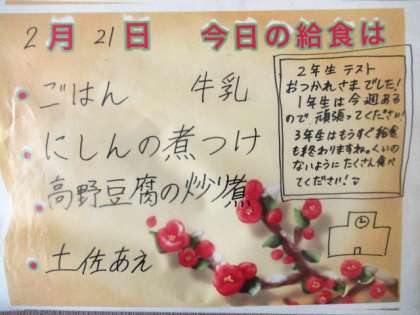 2月21日 今日の給食は
ごはん 牛乳
にしんの煮つけ
高野豆腐の炒り煮
土佐あえ
2年生 テスト
おつかれさまでした!
1年生は今週ある
ので頑張ってください!
3年生はもうすぐ給食
も終わりますね。くいの
ないようにたくさん食べ
てください!